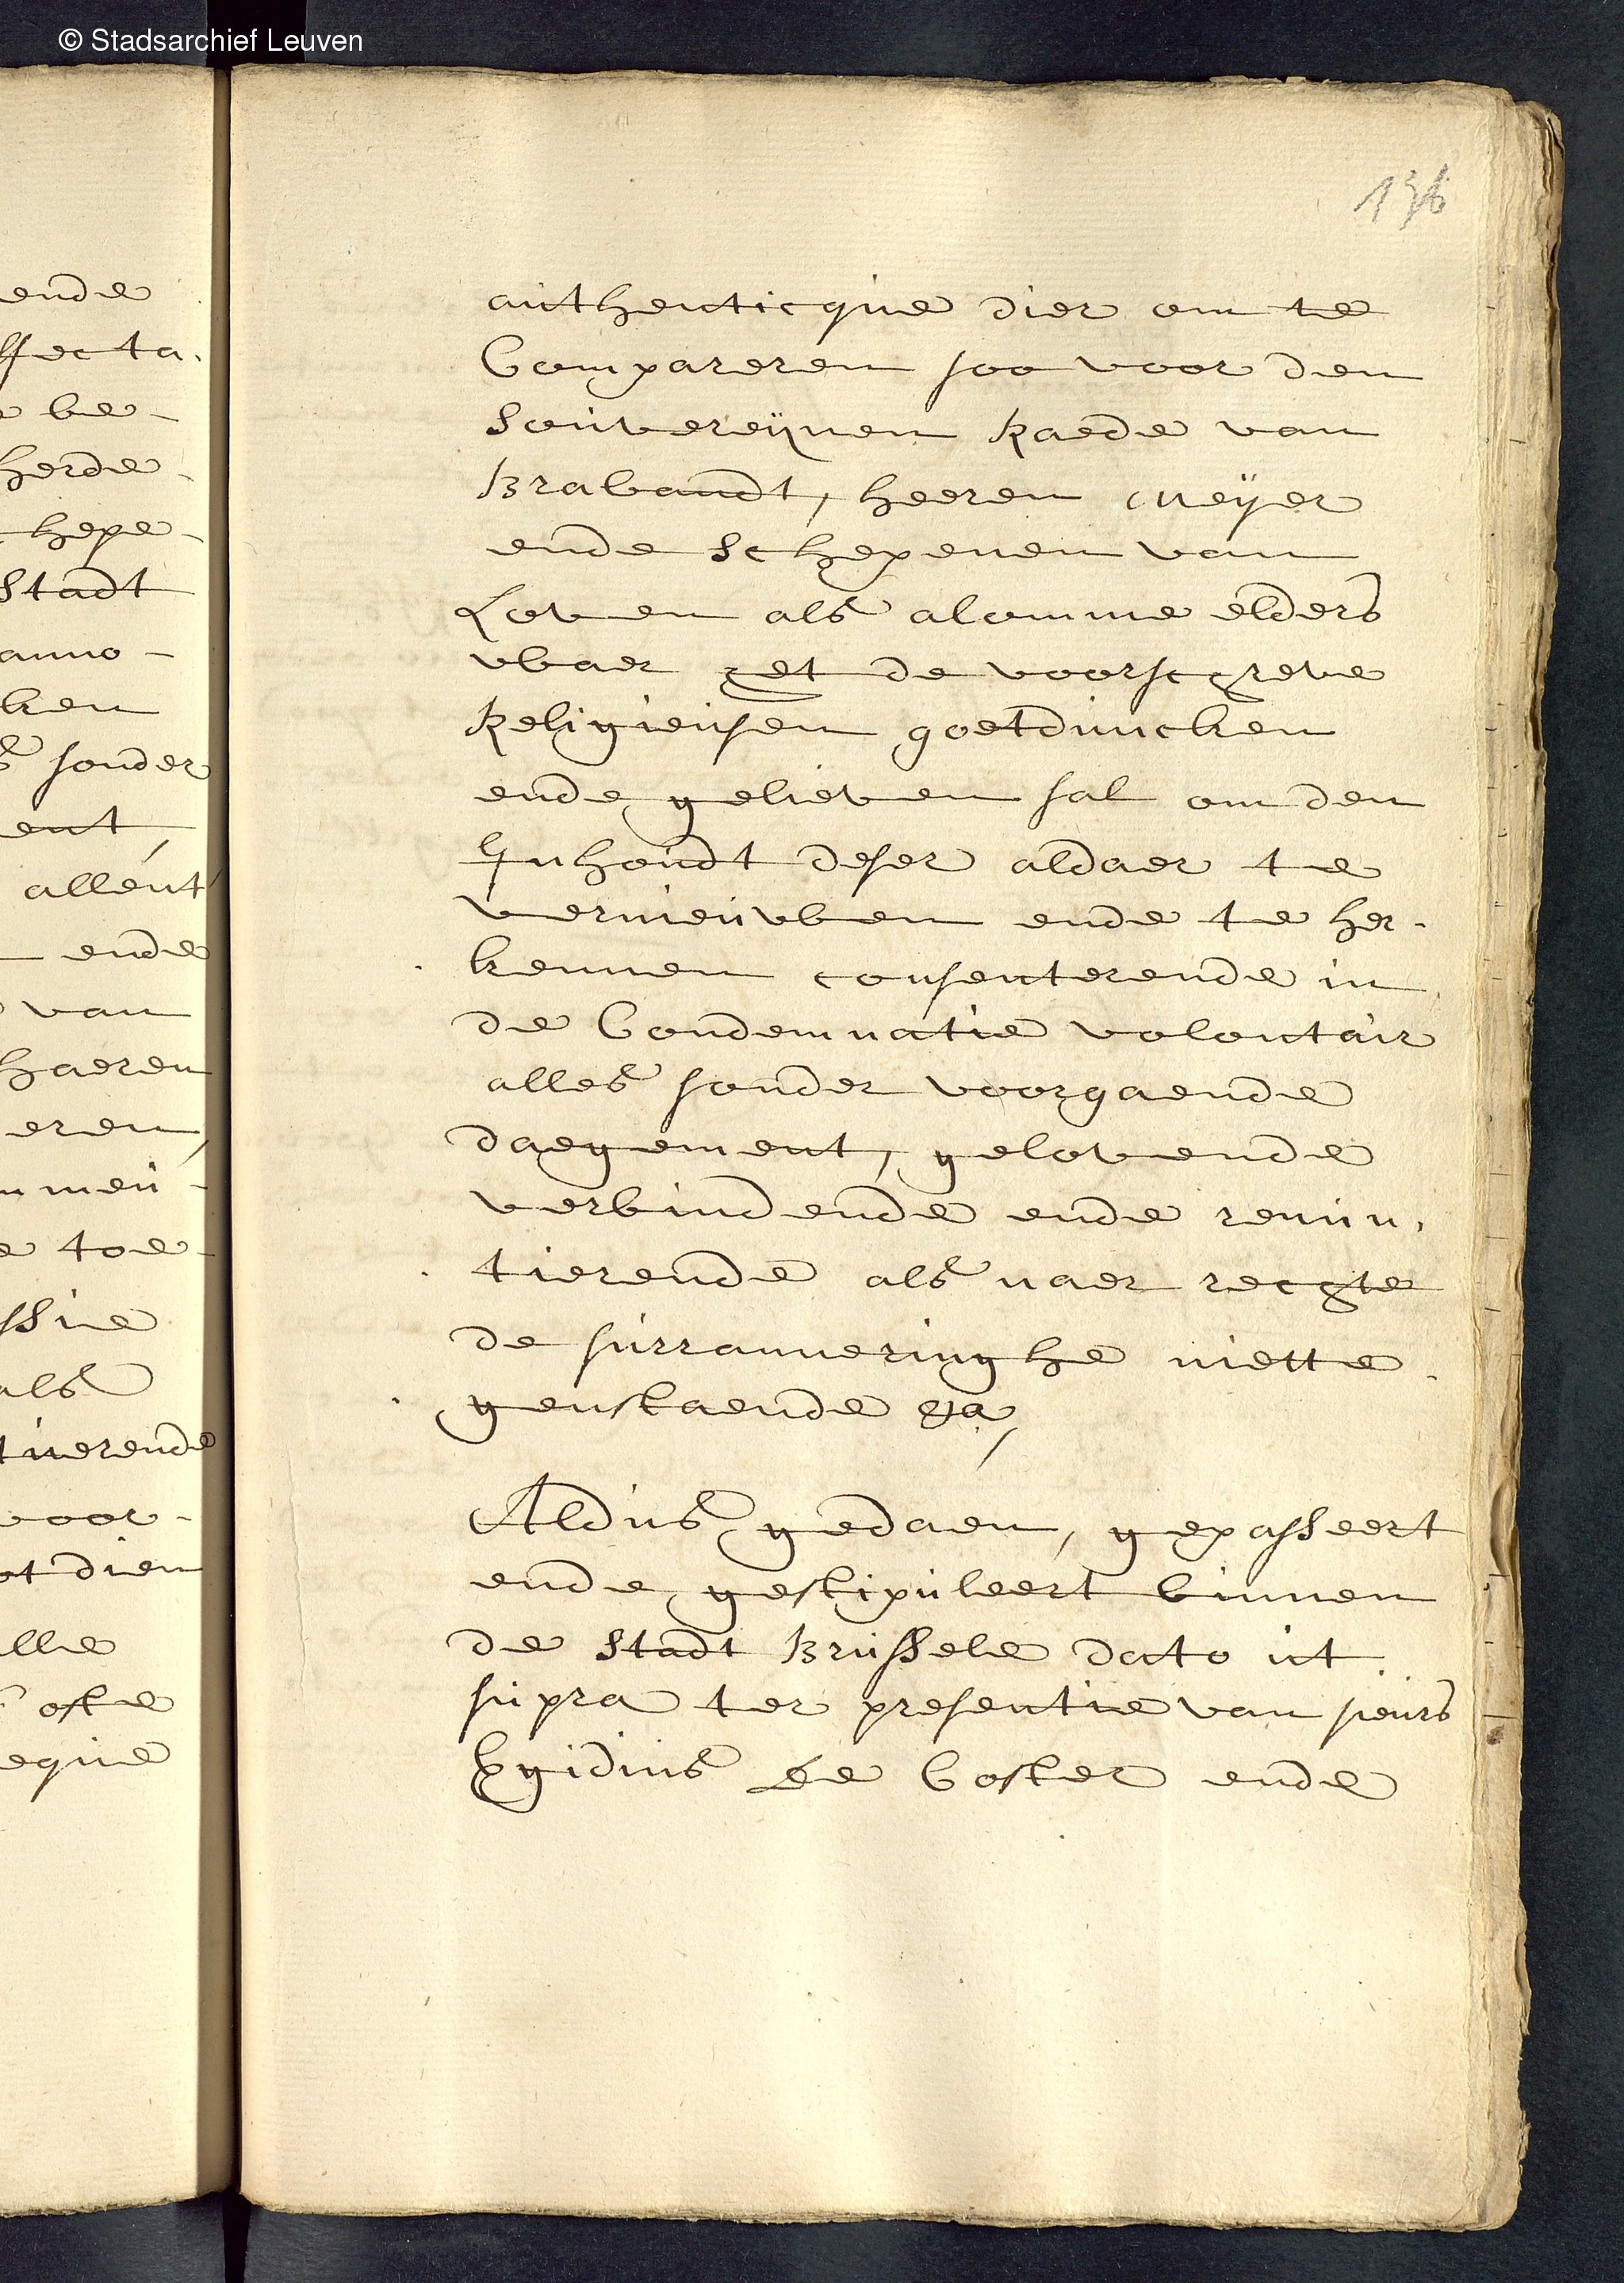 © Stadsarchief Leuven
136
authenticque dier om te
Compareren soo voor den
Souvereijnen Raede van
Brabandt, heeren Meÿer
ende Schepenen van
Loven als alomme elders
waer het de voorschreve
Religieusen goetduncken
ende gelieven sal om den
Inhoudt deser aldaer te
vernieuwen ende te her-
kennen consenterende in
de Condemnatie volontair
alles sonder voorgaende
daegement, gelovende
verbindende ende renun-
tierende als naer rechte
de surranneringhe niette-
genstaende &a
Aldus gedaen, gepasseert
ende gestipuleert binnen
de Stadt Brussele dato ut
supra ter presentie van sieurs
Egidius De Coster ende
ende
be-
herde-
Stadt
anno-
ken
sonder
ent,
allent
ende
van
haeren
eren,
toe-
als
voor-
dien